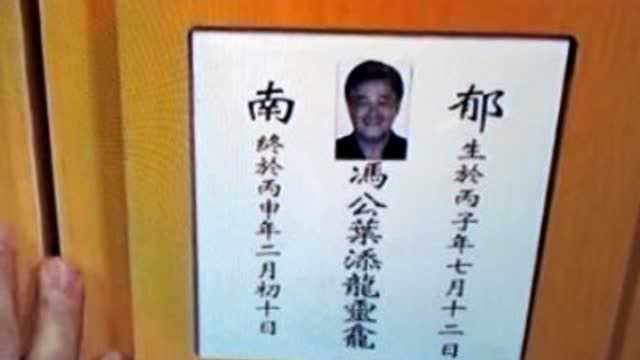 郁
生於丙子年七月十二日
馮公葉添龍靈龕
南
終於丙申年二月初十日